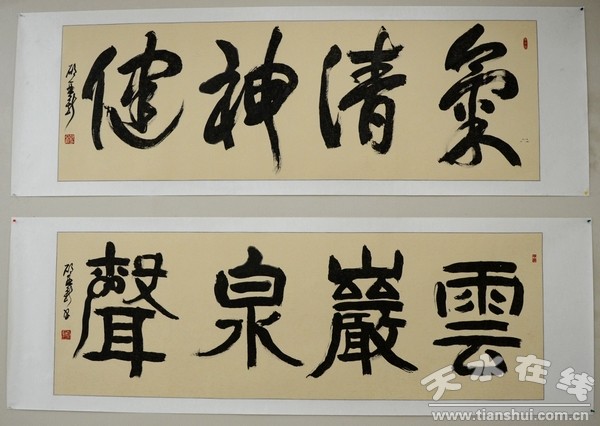 氣清神健
雲巖泉聲
天水在线
www.tianshui.com.cn